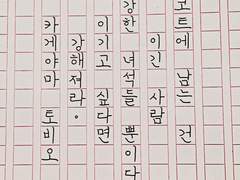 코트에 남는 건
이긴 사람
강한 녀석들 뿐이다
이기고 싶다면
강해져라.
카게야마 토비오